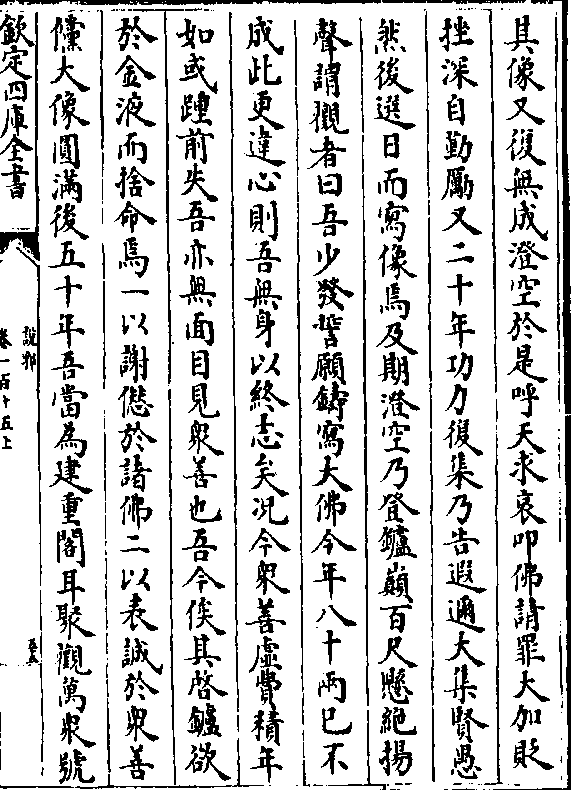 其像又復無成澄空於是呼天求哀叩佛請罪大加貶
挫深自勤勵又二十年功力復集乃告遐邇大集賢愚
然後選日而寫像焉及期澄空乃登鑪巔百尺懸絶揚
聲謂觀者曰吾少發誓願鑄寫大佛今年八十兩已不
成此更違心則吾無身以終志矣况今衆善虛費積年
如或踵前失吾亦無面目見衆善也吾今俟其啓鑪欲
於金液而捨命焉一以謝愆於諸佛二以表誠於衆善
儻大像圓滿後五十年吾當為建重閣耳聚觀萬衆號
欽定四庫全書
說郛
卷一百十五上